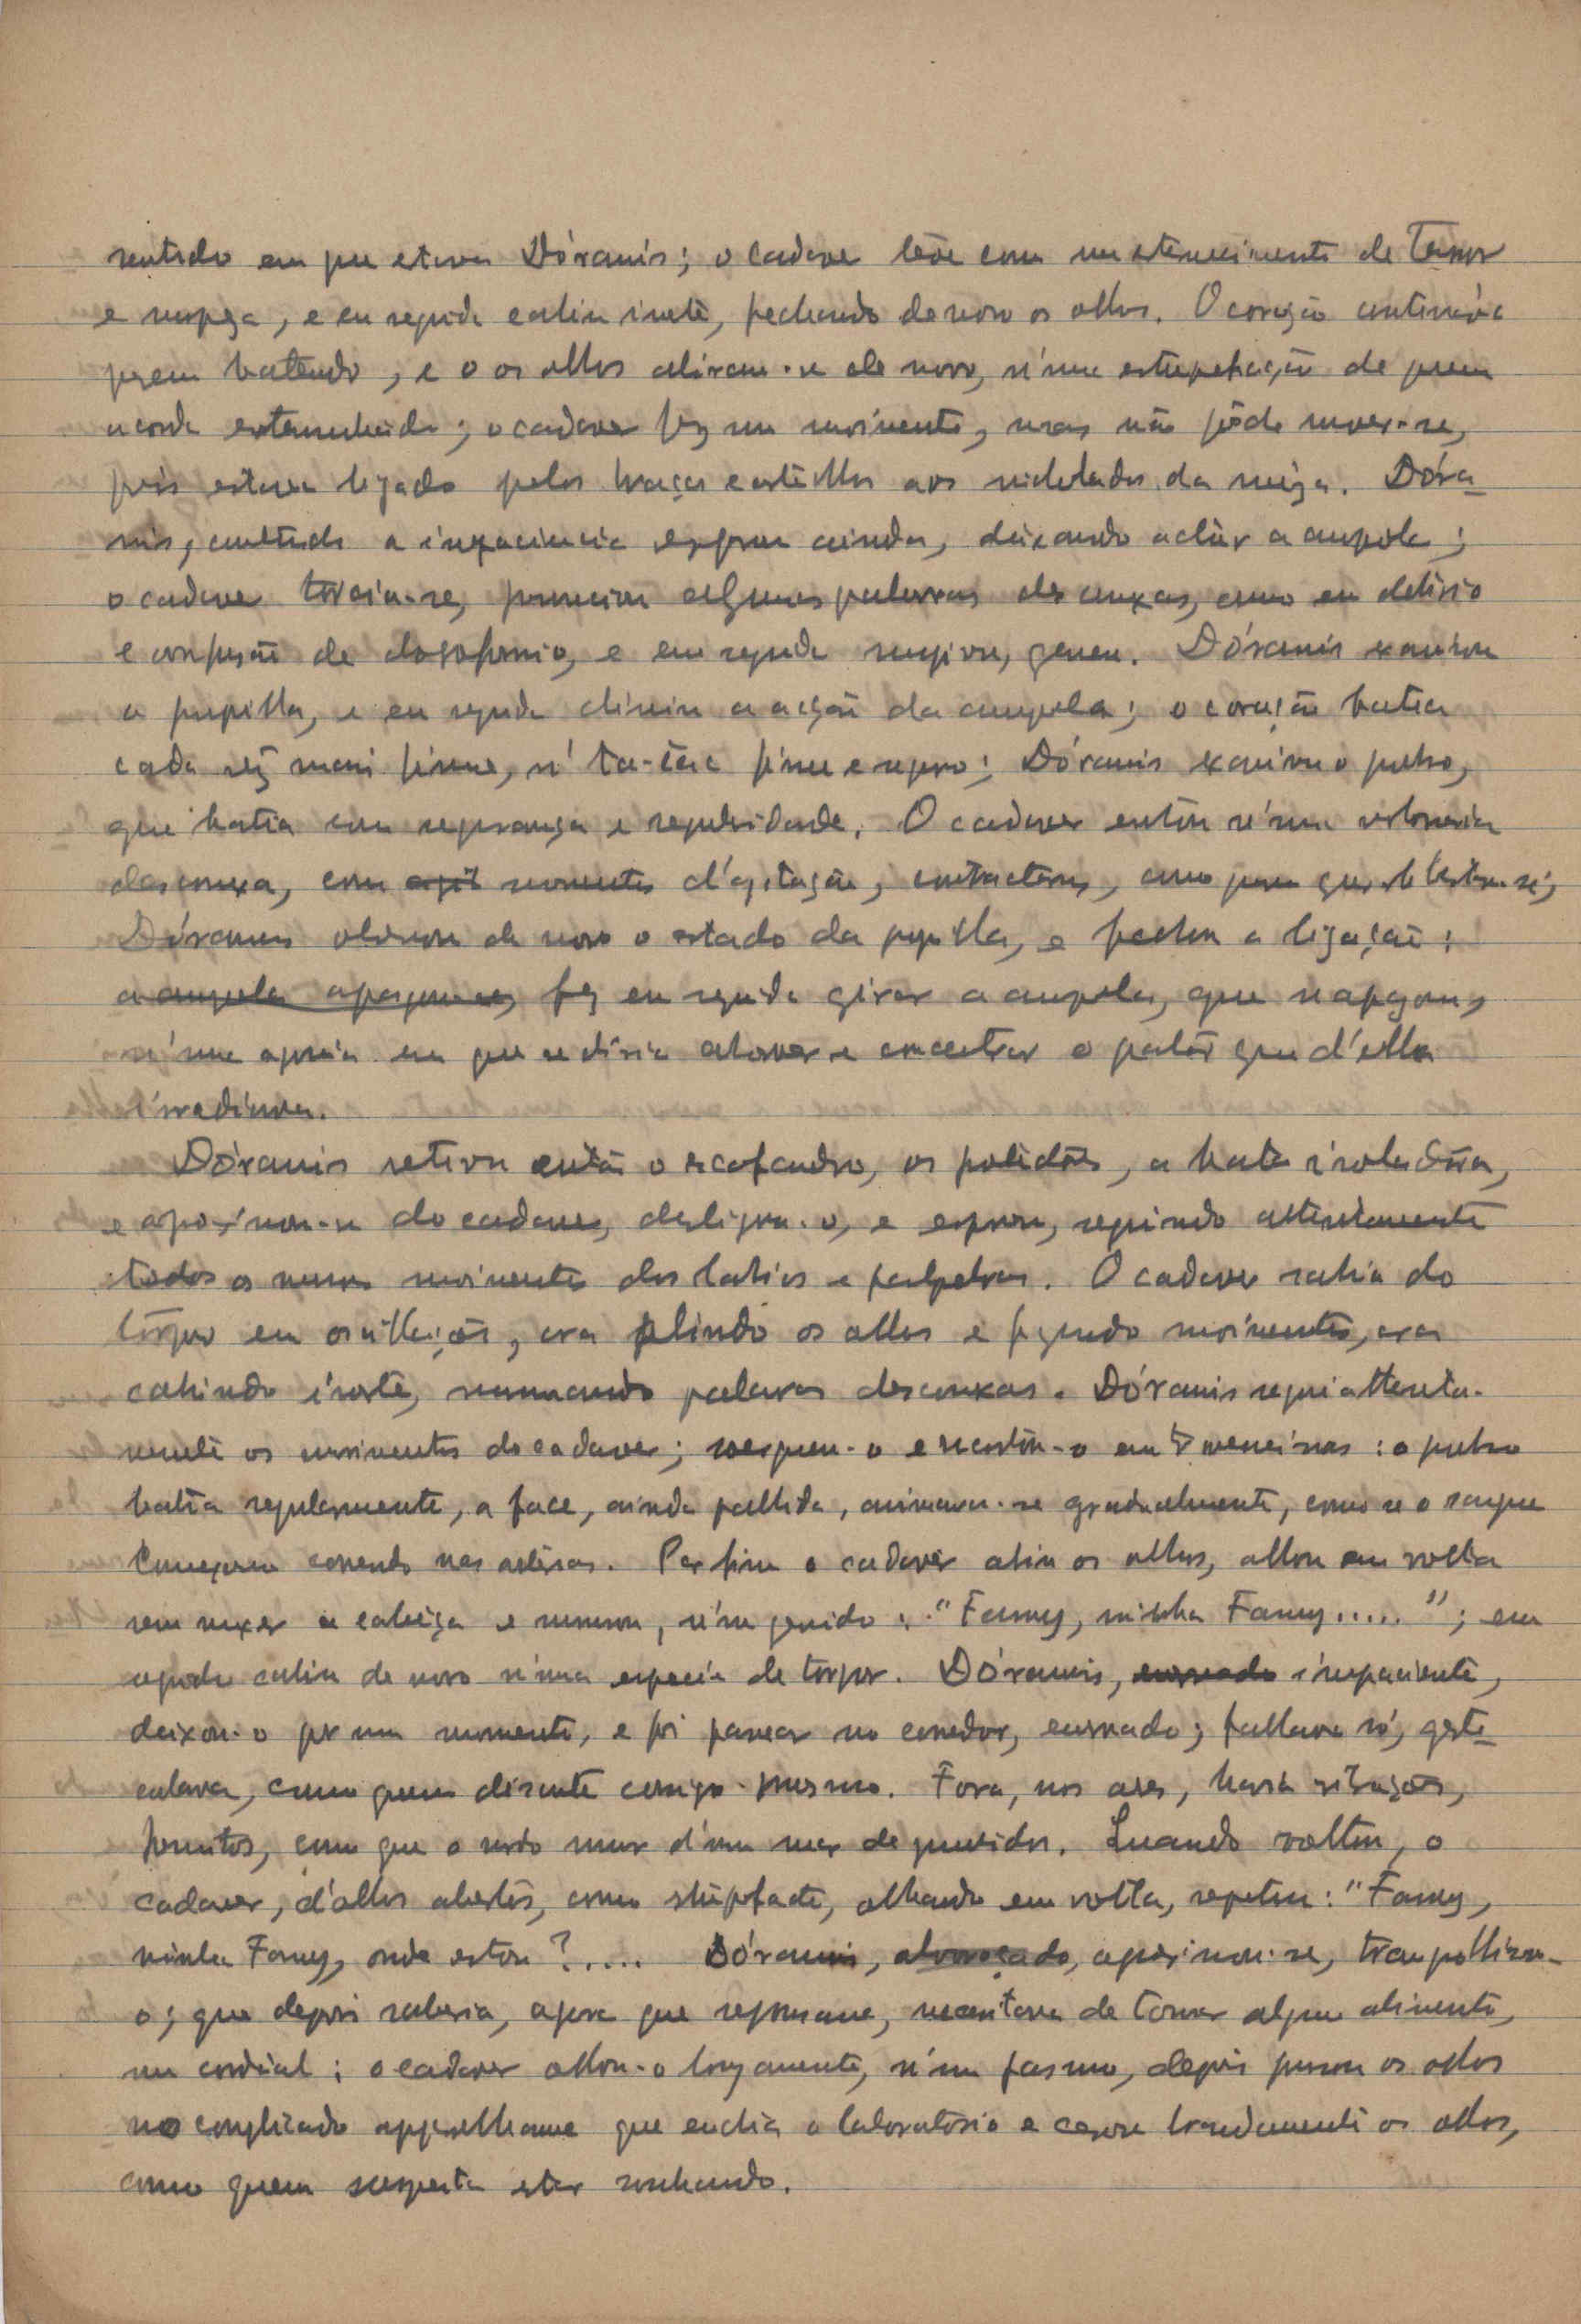 sentido em que estava Dóramis; o cadaver teve como um estremecimento de terror
e surpreza, e em seguida cahiu inerte, fechando de novo os olhos. O coração continuava
porem batendo, e o os olhos abriram-se de novo, n'uma estupefacção de quem
acorda estremunhado; o cadaver fez um movimento, mas não pôde mover-se,
pois estava ligado pelos braços e artelhos aos lados da meza. Dóra-
mis, contendo a impaciencia esperou ainda, deixando actuar a ampola;
o cadaver torcia-se, pronunciou algumas palavras desconexas, como em delirio
e confusão de clorofornio, e em seguida suspirou, gemeu. Dóramis examinou
a pupilla, e em seguida diminuiu a acção da ampola; o coração batia
cada vez mais firme, n'um tic-tac firme e seguro; Dóramis examinou o pulso,
que batia com segurança e regularidade. O cadaver entrou n'uma
desconexa, com agit momentos d'agitação, contracturas, como para
Dóramis observou de novo o estado da pupilla, e fechou a ligação:
a ampola apagou-se, fez em seguida girar a ampola, que se apagou,
n'uma agonia em que se diria absorver e concentrar o palor que d'ella
irradiava.
Dóramis retirou então o escafandro, os polidões, a bata isoladôra,
e aproximou-se do cadaver, desligou-o, e esperou, seguindo attentamente
todos os menores movimentos dos labios e palpebras. O cadaver sahia do
torpor em oscillações, ora abrindo os olhos e fazendo movimentos, ora
cahindo inerte, murmurando palavras desconexas. Dóramis seguia attenta-
mente os movimentos do cadaver; soergueu-o e recostou-o em travesseiros: o pulso
batia regularmente, a face, ainda pallida, animava-se gradualmente, como se o sangue
começasse correndo nas arterias. Por fim o cadaver abriu os olhos, olhou em volta
sem mexer a cabeça e murmurou, n'um gemido: "Fanny, minha Fanny....."; em
seguida cahiu de novo n'uma especie de torpor. Dóramis, enervado impaciente,
deixou-o por um momento, e foi passear no corredor, enervado; fallava só, gesti-
culava, como quem discute comsigo-mesmo. Fora, nos ares, havia sibilações,
prantos, como que o surdo rumor d'um mar de gemidos. Quando voltou, o
cadaver, d'olhos abertos, como stupefacto, olhando em volta, repetiu: "Fanny,
minha Fanny, onde estou?.... Dóramis, alvoroçado, aproximou-se, tranquillisou-
o; que depois saberia, agora que repousasse, necessitava de tomar algum alimento,
um cordial; o cadaver olhou-o longamente, n'um pasmo, depois pousou os olhos
no complicado apparelhame que enchia o laboratorio e cerrou brandamente os olhos,
como quem suspeita estar sonhando.